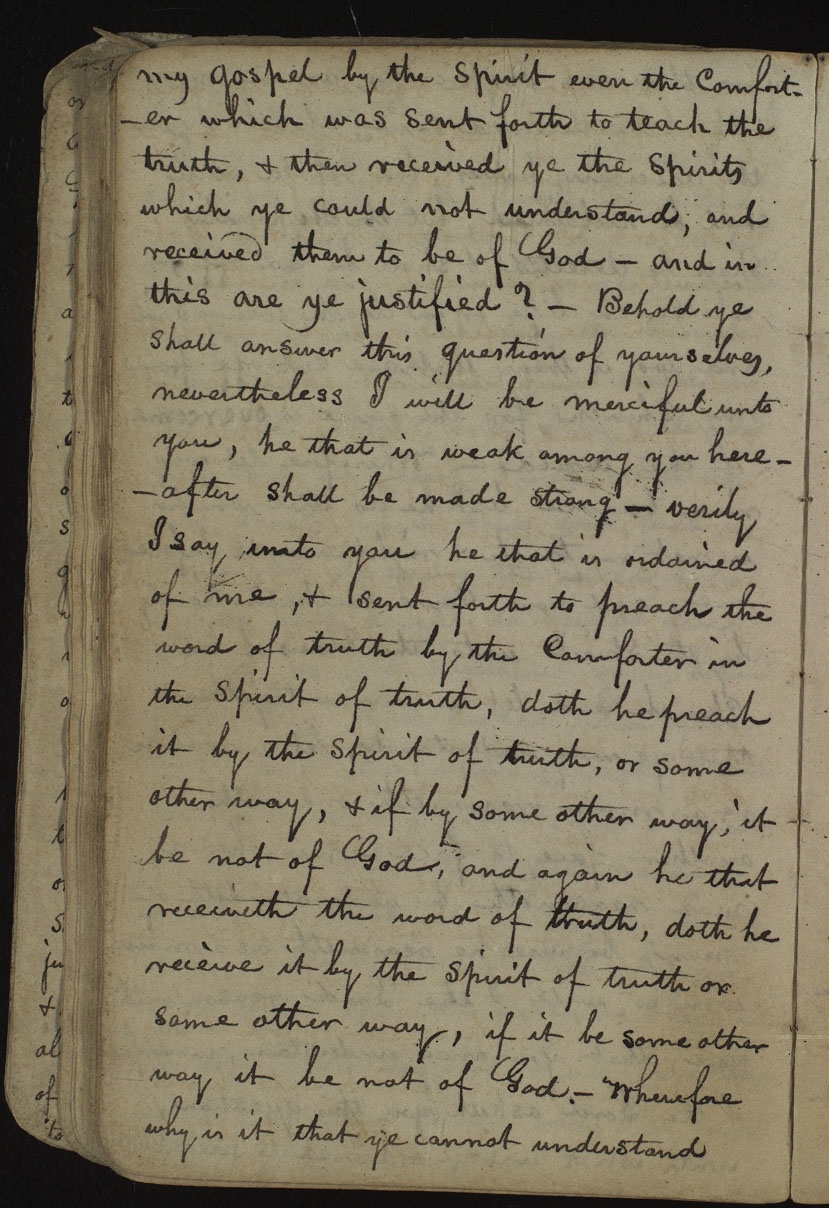 my gospel by the Spirit even the Comfort-
-er which was sent forth to teach the
truth, & then received ye the Spirits
which ye could not understand, and
received them to be of God – and in
this are ye justified? – Behold ye
shall answer this question of yourselves,
nevertheless I will be merciful unto
you, he that is weak among you here-
-after shall be made strong – verily
I say unto you he that is ordained
of me, & sent forth to preach the
word of truth by the Comforter in
the Spirit of truth, doth he preach
it by the Spirit of truth, or some
other way, & if by some other way, it
be not of God, and again he that
receiveth the word of truth, doth he
receive it by the Spirit of truth or
some other way, if it be some other
way it be not of God. – Wherefore
why is it that ye cannot understand